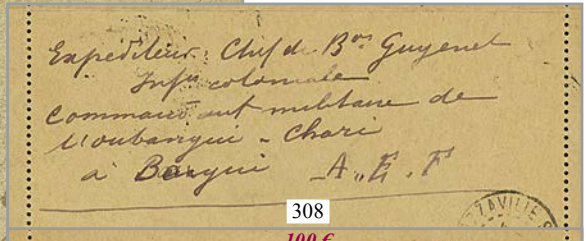 Expediteur: Chef de Bon Guyenet
Infie coloniale
Commandant militaire de
l'oubangui - Chari
à Bangui A.E.F
ZZAVILLE
308
100 €